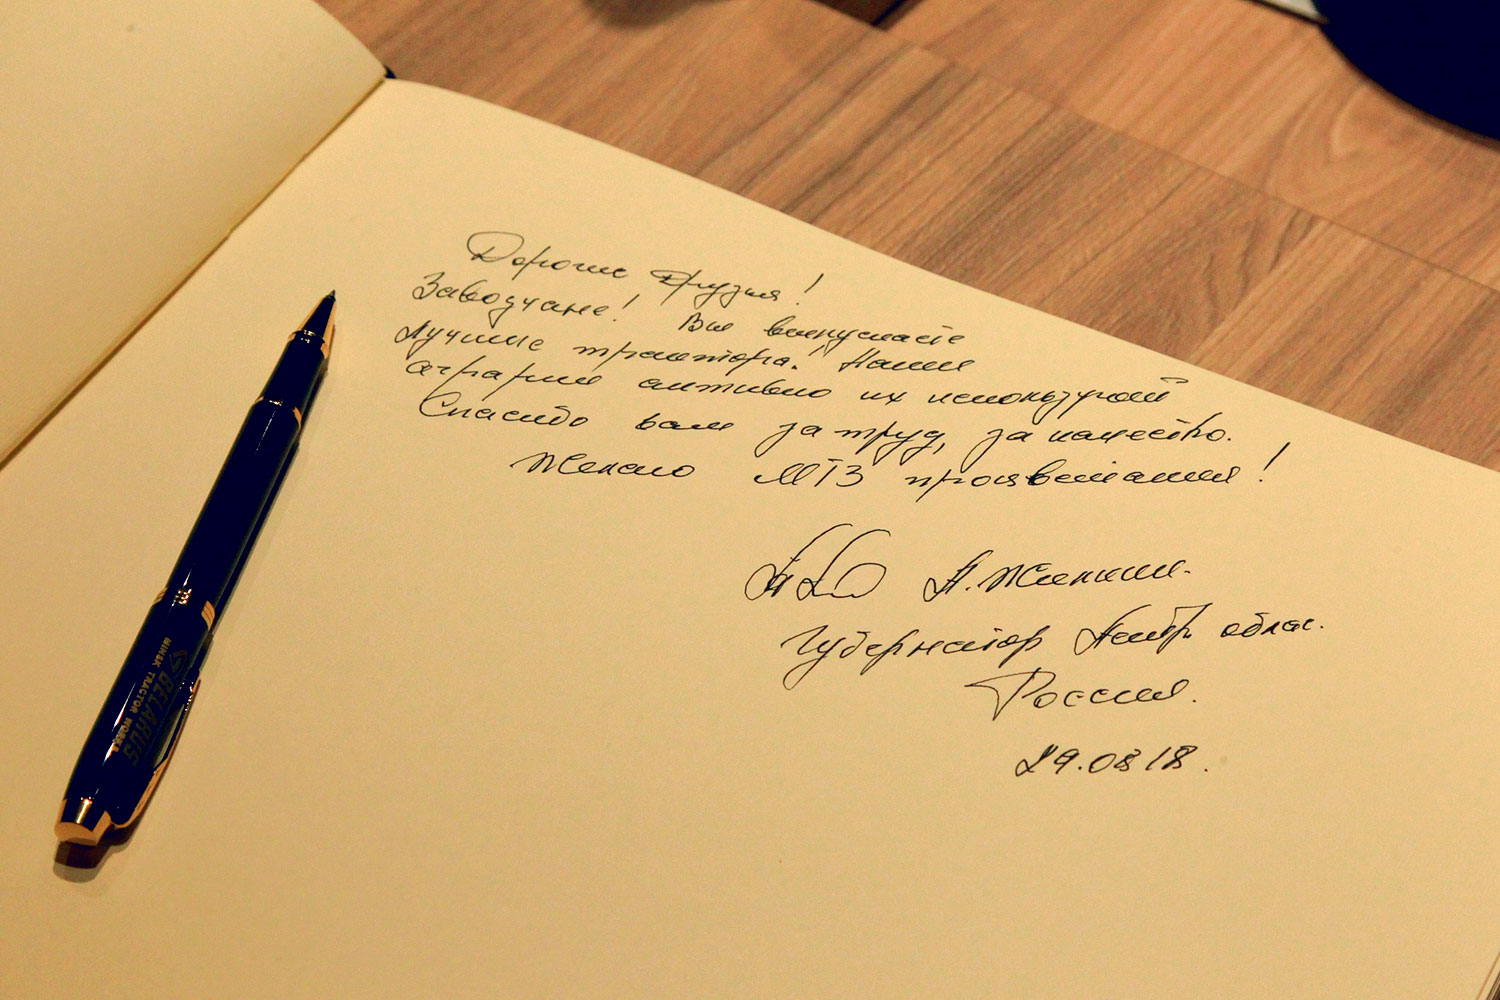 Дорогие Друзья!
Заводчане! Вы выпускаете
лучшие трактора! Наши
аграрии активно их используют
Спасибо вам за труд, за качество.
Желаю МТЗ процветания!
А. Жилкин.
Губернатор Астр. облас.
Россия.
29.0818.
BELARUS
MINSK TRACTOR WORKS